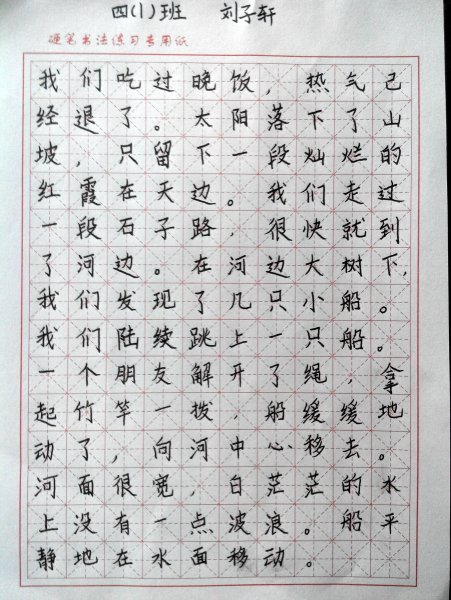 四(1)班 刘子轩
硬笔书法练习专用纸
我们吃过晚饭，热气已
经退了。太阳落下了山
坡，只留下一段灿烂的
红霞在天边。我们走过
一段石子路，很快就到
了河边。在河边大树下，
我们发现了几只小船。
我们陆续跳上一只船。
一个朋友解开了绳，拿
起竹竿一拨，船缓缓地
动了，向河中心移去。
河面很宽，白茫茫的水
上没有一点波浪。船平
静地在水面移动。